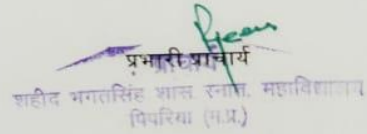 प्रभारी प्राचार्य
शहीद भगतसिंह शास. स्नात. महाविद्यालय
पिपरिया (म.प्र.)